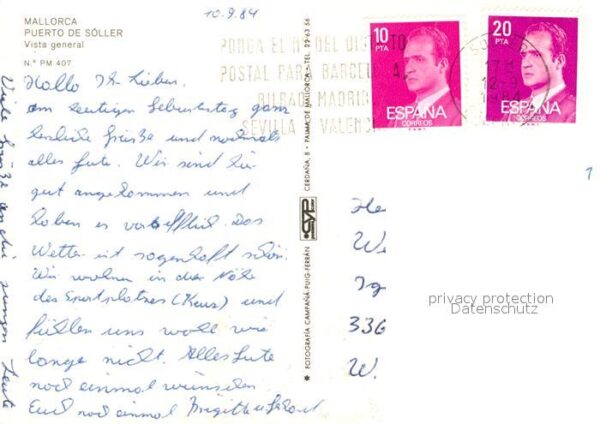 10.9.84
MALLORCA
PUERTO DE SÓLLER
Vista general
N.º PM 407
Hallo Ihr Lieben.
am heutigen Geburtstag ganz
herzliche Grüße und nochmals
alles Gute. Wir sind hier
gut angekommen und
haben es vortrefflich. Das
Wetter ist sagenhaft schön.
Wir wohnen in der Nähe
des Sportplatzes (Haus) und
fühlen uns wohl wie
lange nicht. Alles Gute
noch einmal wünschen
Euch noch einmal Brigitte u.
Viele Grüße an die jungen Leute
FOTOGRAFIA CAMPAÑA-PUIG-FERRÁN
CYP
CERDAÑA, 8 • PALMA DE MALLORCA • TEL. 22-63-56
PONGA EL Nº DEL DISTRITO
POSTAL PARA BARCELONA,
BILBAO, MADRID,
SEVILLA VALENCIA
10
PTA
ESPAÑA
CORREOS
20
PTA
ESPAÑA
CORREOS
17H
12-9
1984
He
W.
Ig
336
W.
privacy protection
Datenschutz
1